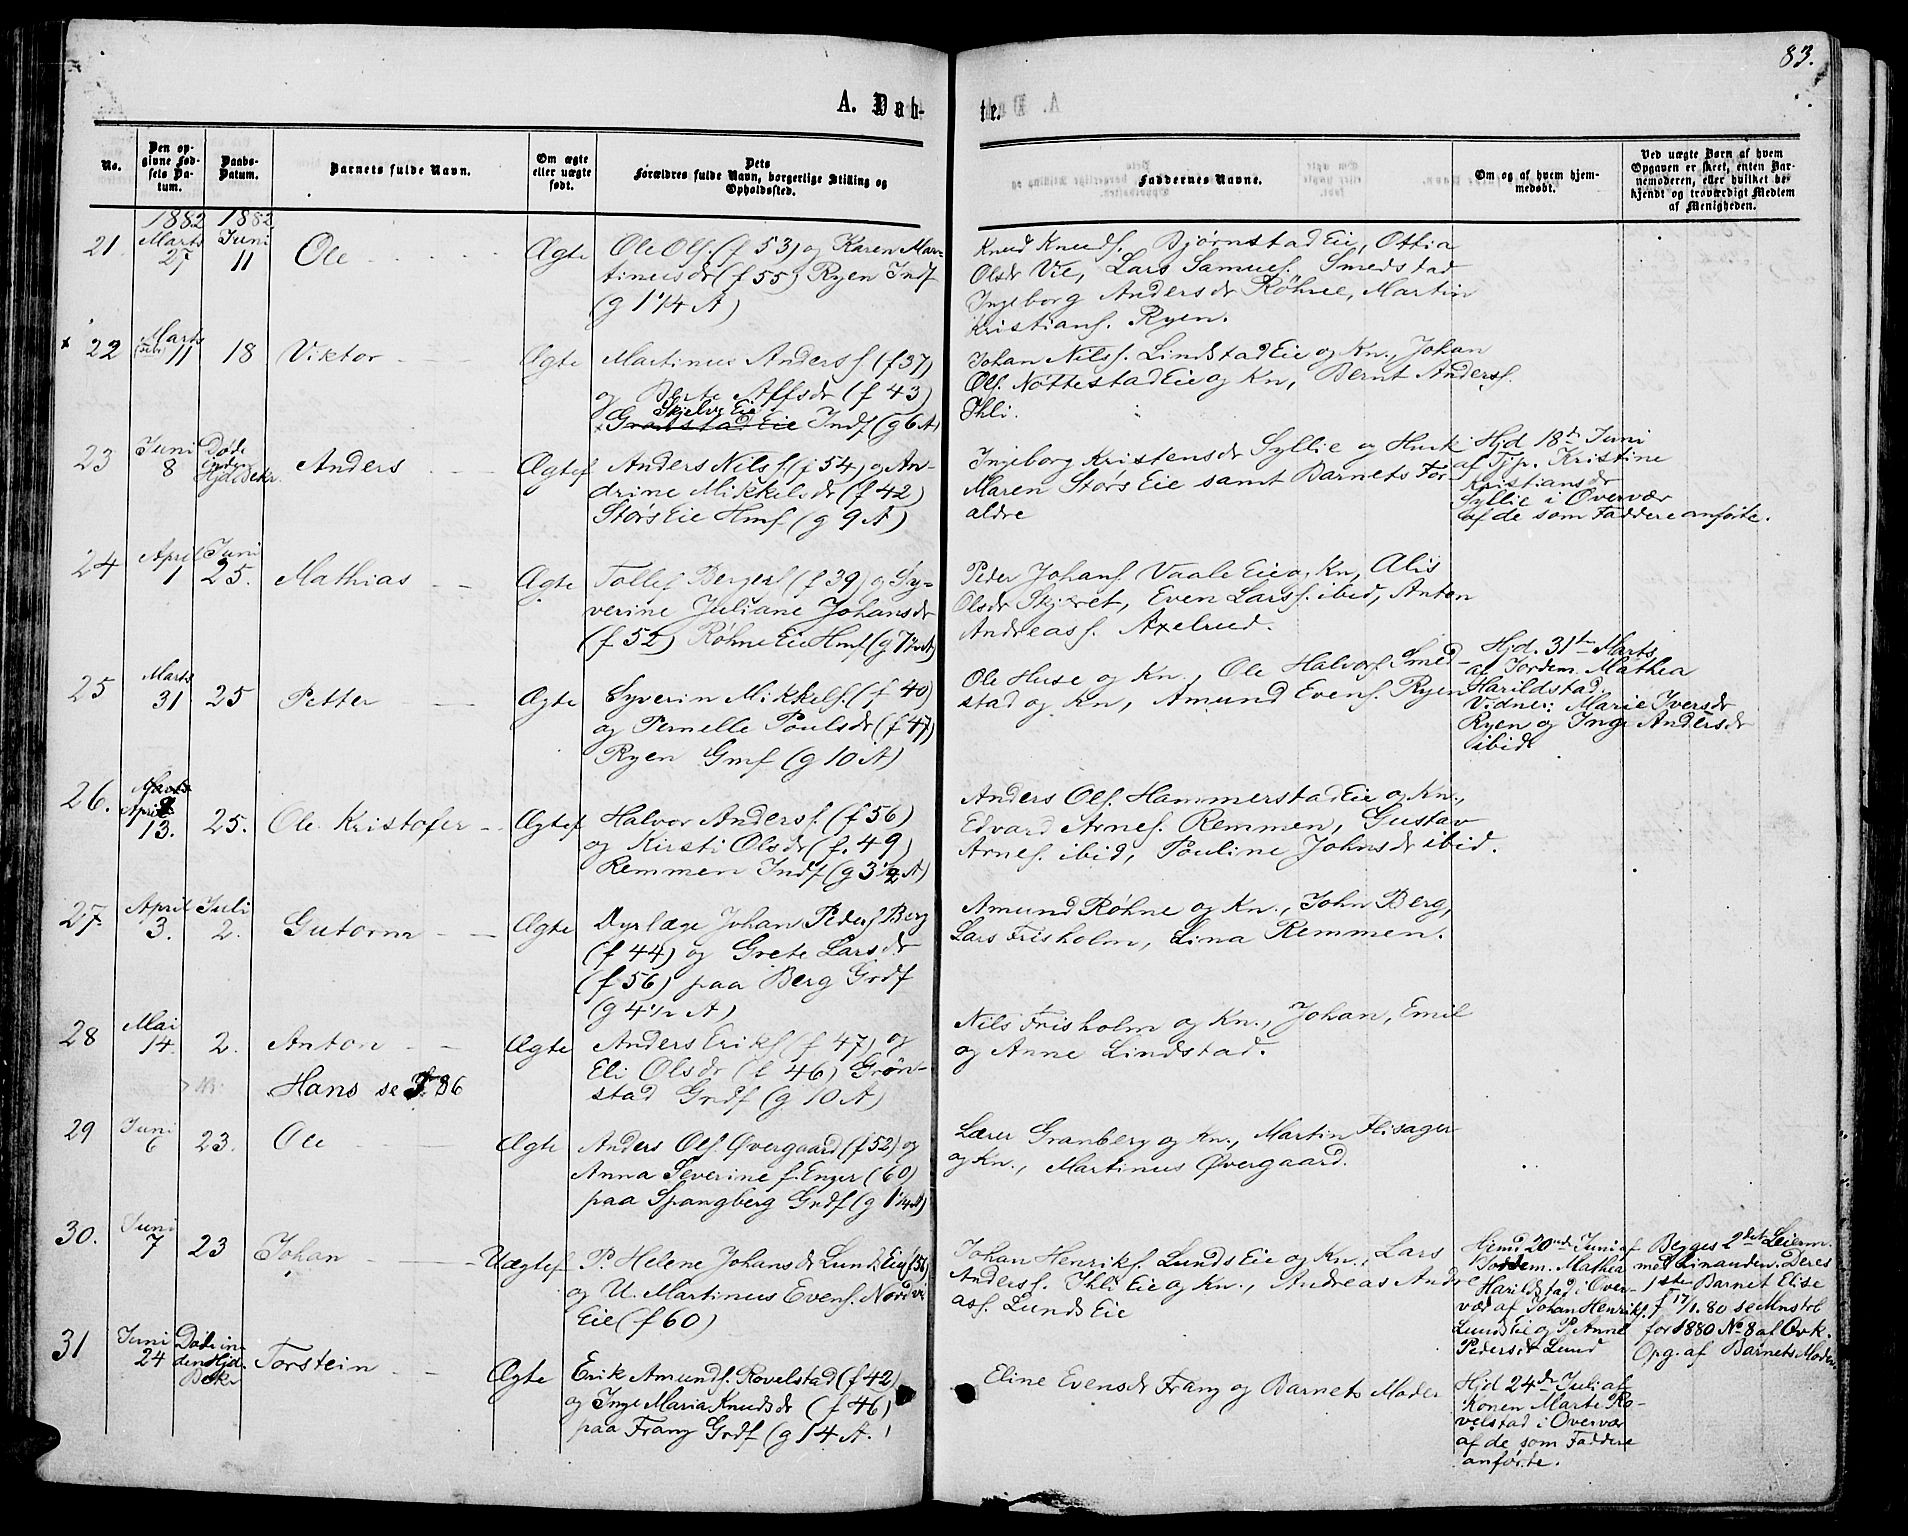 83.
A. Dåb-
te.
No.
Den op-
givne Fød-
sels Da-
tum.
Daabs-
Datum.
Barnets fulde Navn.
Om ægte
eller uægte
født.
Dets
Forældres fulde Navn, borgerlige Stilling og
Opholdssted.
Faddernes Navne.
Om og af hvem hjem-
medøbt.
Ved uægte Børn af hvem
Opgaven er skeet, enten Bar-
nemoderen, eller hvilket be-
kjendt og troværdigt Medlem
af Menigheden.
1882 1882
21. Marts 27 Juni 11 Ole Ægte
Ole Ols. (f 53) og Karen Mar-
tinusdr (f 55) Ryen Indf
(g 1 1/4 A)
Knud Knuds. Bjørnstad Eie, Ottia
Olsdr Vie, Lars Samuels. Smedstad
Ingeborg Andersdr Røhne, Martin
Kristians. Ryen.
x 22 Marts 11 18 Viktor Ægte
Martinus Anders (f 37)
og Berte Affsdr (f 43)
Skjelve Eie
Grønstad Eie Indf (g 6 A)
Johan Nilss. Lindstad Eie og Kn., Johan
Ols. Nottestad Eie og Kn, Bernt Anders.
Ihli.
23 Juni 8 Døde inden Hjd Bekr. Anders Ægtef
Anders Nils. (f 54) og An-
drine Mikkelsdr (f 42)
Størs Eie Hmf (g 9 A)
Ingeborg Kristensdr Syllie og Husk
Maren Størs Eie samt Barnets For-
ældre
Hjd 18de Juni
af Tjp. Kristine
Kristiansdr
Syllie i Overvær
af de som Faddere anførte.
24 April 1 Juni 25. Mathias Ægte
Tollef Berges. (f 39) og Sy-
verine Juliane Johansdr
(f 52) Røhne Eie Hmf (g 7 1/2 A)
Peder Johans. Vaale Eie og Kn, Alis
Olsdr Skjeret, Even Larss. ibid, Anton
Andreass. Axelrud.
25 Marts 31 25 Petter Ægte
Syverin Mikkels. (f 40)
og Pernelle Poulsdr (f 47)
Ryen Gmf (g 10 A)
Ole Huse og Kn., Ole Halvors. Smed-
stad og Kn, Amund Evens. Ryen
Hjd. 31te Marts
af Jordem. Mathea
Harildstad.
Vidner: Marie Iversdr
Ryen og Inge Andersdr
ibid
26. April 13. 25. Ole Kristofer Ægtef
Halvor Anders. (f 56)
og Kirsti Olsdr (f. 49)
Remmen Indf (g 3 1/2 A)
Anders Ols. Hammerstad Eie og Kn.,
Edvard Arnes. Remmen, Gustav
Arnes. ibid, Pouline Johnsdr ibid.
27. April 3. Juli 2. Gutorm Ægte
Dyrlæge Johan Peders Berg
(f 44) og Grete Larsdr
(f. 56) paa Berg Grdf
(g 4 1/2 A)
Amund Røhne og Kn., John Berg,
Lars Frisholm, Lina Remmen.
28 Mai 14. 2. Anton Ægte
Anders Eriks. (f 47) og
Eli Olsdr (f 46) Grøn-
stad Grdf (g 10 A)
Nils Frisholm og Kn., Johan, Emil
og Anne Lindstad.
Hans se F 86
29 Juni 6 23. Ole Ægte
Anders Ols. Øvergaard (f 52) og
Anna Severine f. Enger (60)
paa Spangberg Grdf (g 1 1/4 A)
Lærer Granberg og Kn., Martin Flisager
og Kn., Martinus Øvergaard.
30. Juni 7 23 Johan Uægtef
P. Helene Johansdr Lunds Eie (f 58)
og U. Martinus Evens. Nordvi
Eie (f 60)
Johan Henriks. Lunds Eie og Kn., Lars
Anderss. Ihli Eie og Kn., Andreas Andre
ass. Lunds Eie
Hjmd 20de Juni af
Jordem. Mathea
Harildstad i Over-
vær af Johan Henriks.
Lunds Eie og P. Anne
Pedersdr Lund
Begges 2det Leierm.
med hinanden. Deres
1ste Barnet Elise
f 17/1. 80 se Mnstb
for 1880 No 8 af Ovk.
Opg. af Barnets Moder
31 Juni 24 Døde in-
den Hjd. Bekr Torstein Ægte
Erik Amunds. Rovelstad (f 42)
og Inge Maria Knudsdr (f 46)
paa Frang Grdf (g 14 A.)
Eline Evensdr Frang og Barnets Moder
Hjd 24de Juli af
Konen Marte Ro-
velstad i Overvær
af de som Faddere
anførte.